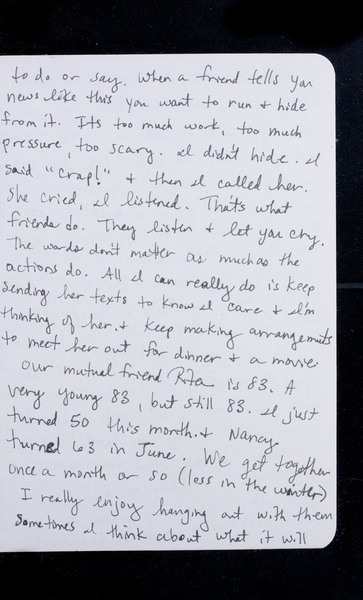 to do or say. When a friend tells you
news like this you want to run & hide
from it. Its too much work, too much
pressure, too scary. I didn't hide. I
said "Crap!" & then I called her.
She cried, I listened. That's what
friends do. They listen & let you cry.
The words don't matter as much as the
actions do. All I can really do is keep
sending her texts to know I care & I'm
thinking of her. & keep making arrangements
to meet her out for dinner & a movie.
Our mutual friend Rita is 83. A
very young 83, but still 83. I just
turned 50 this month. & Nancy
turned 63 in June. We get together
once a month or so (less in the winter)
I really enjoy hanging out with them
Sometimes I think about what it will